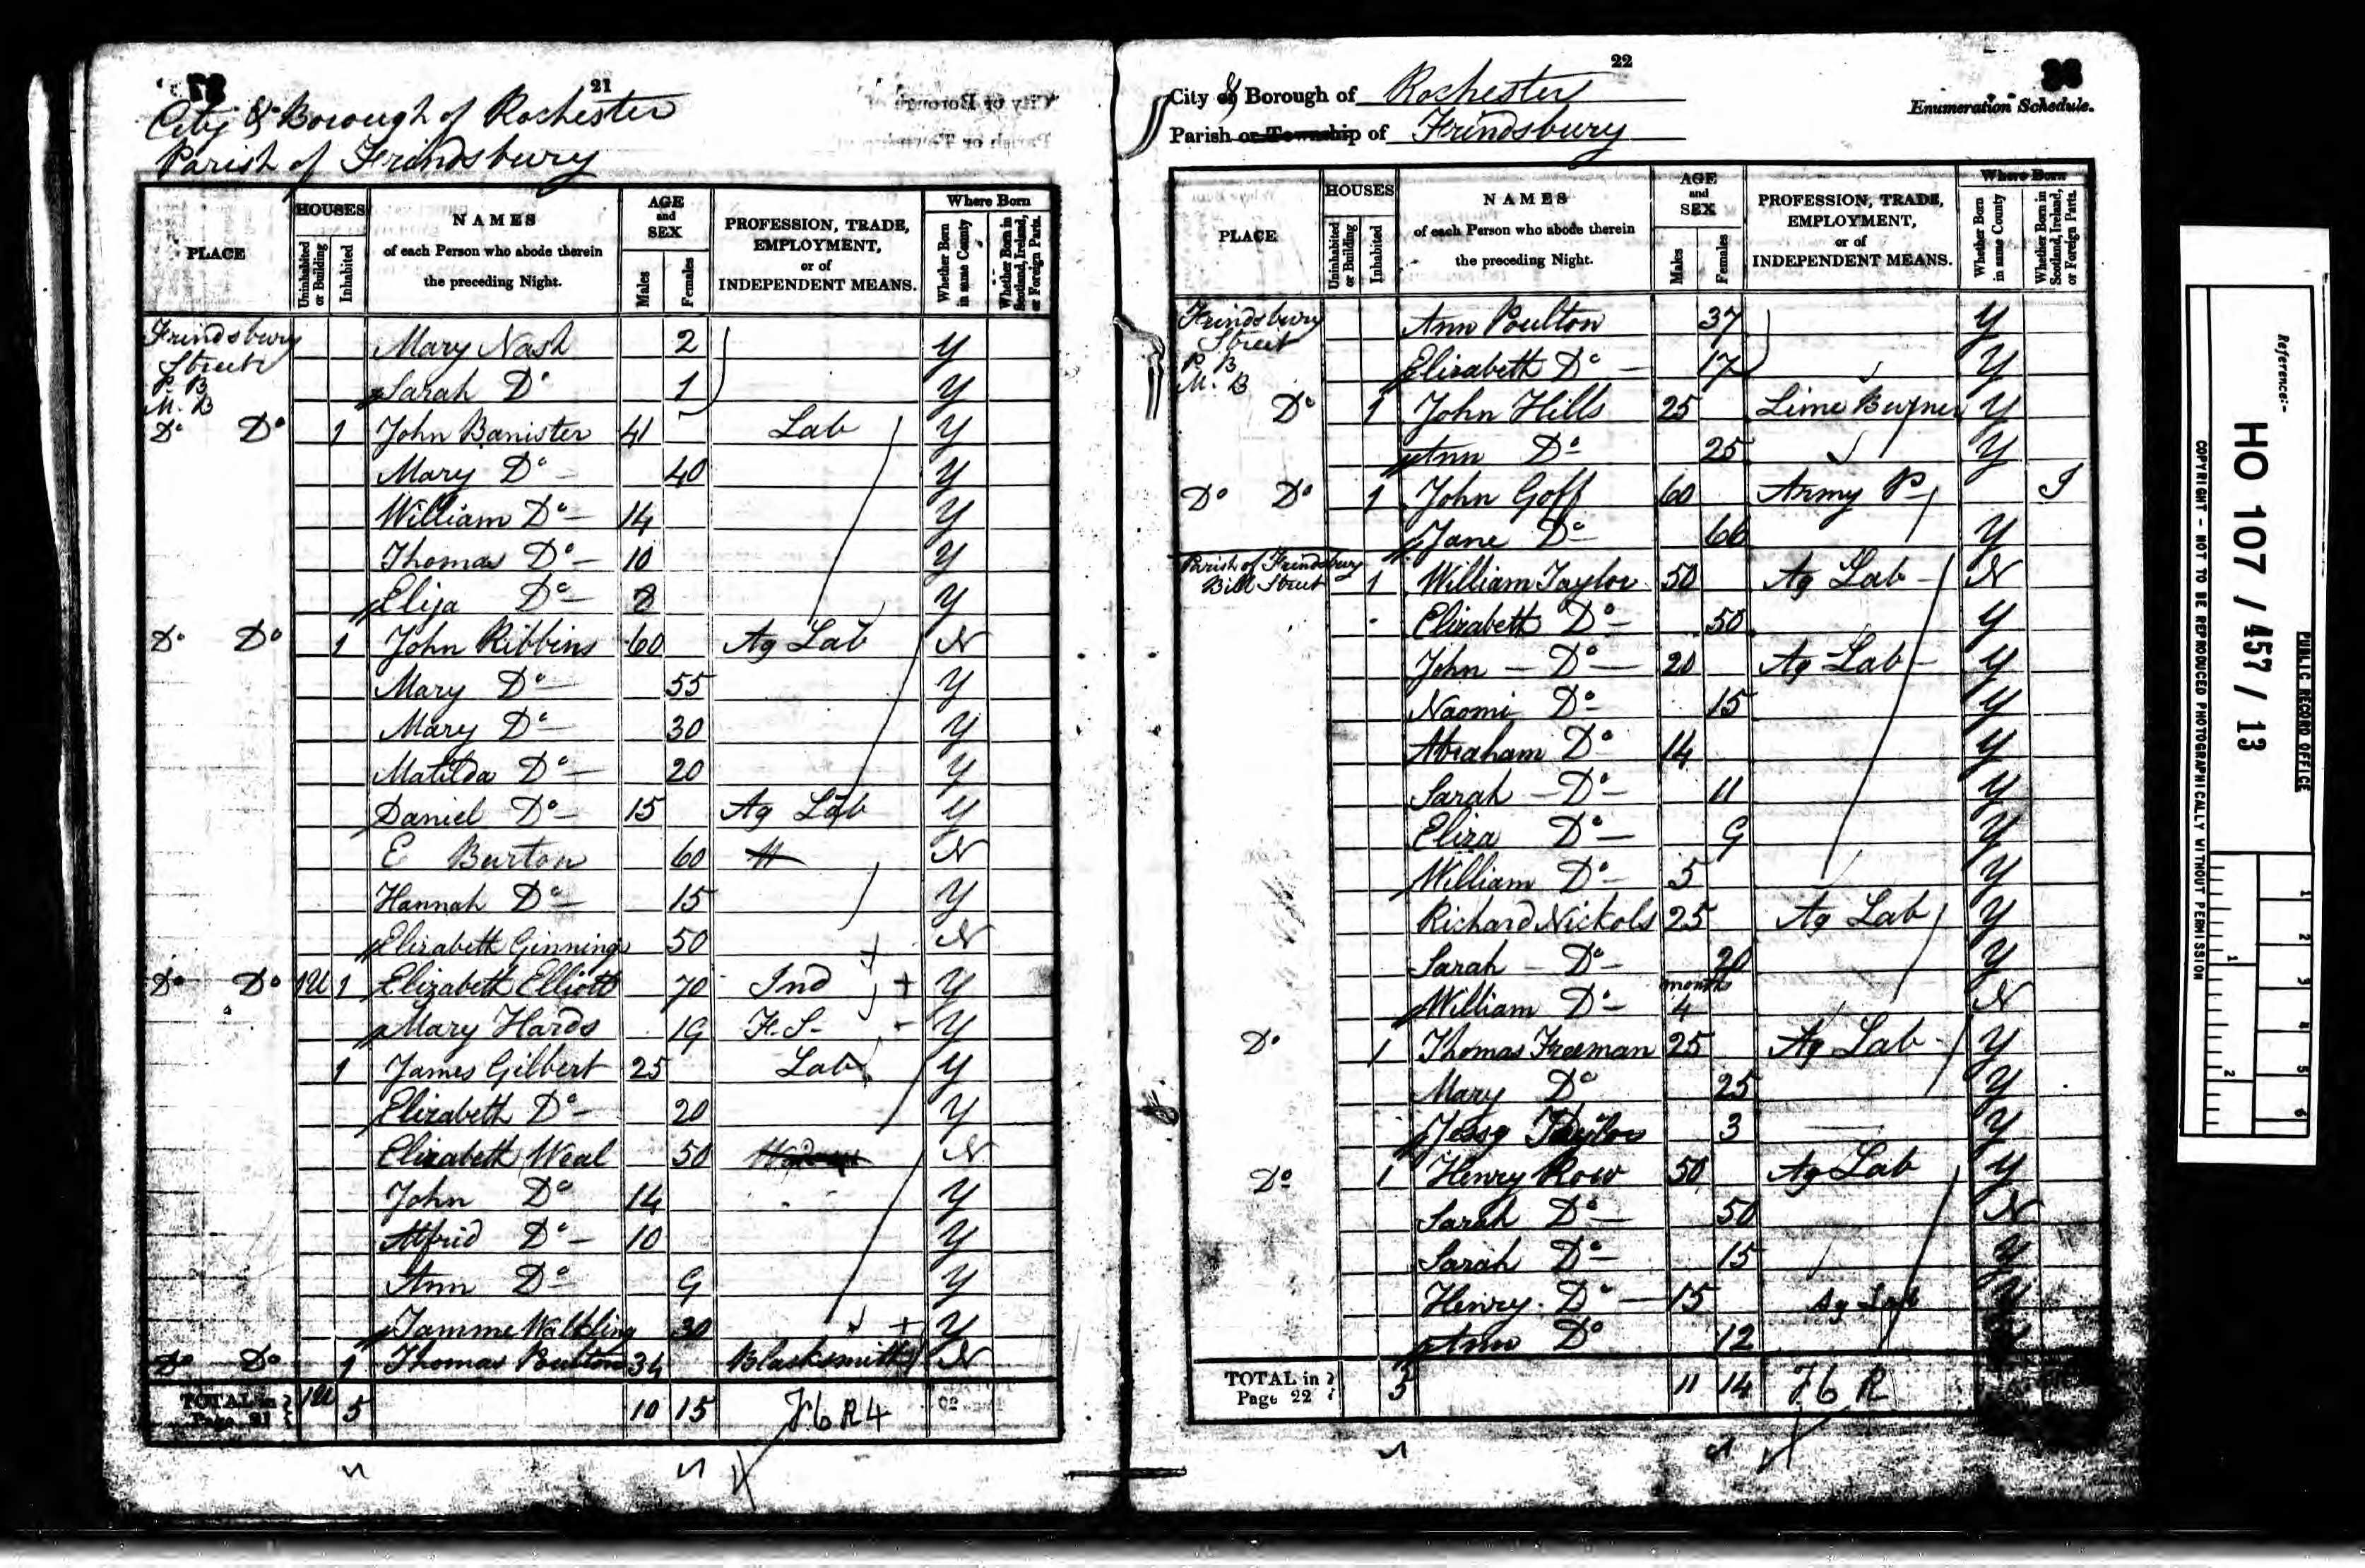 21
City & Borough of Rochester
Parish of Frindsbury
PLACE
HOUSES
Uninhabited or Building
Inhabited
NAMES
of each Person who abode therein
the preceding Night.
AGE
and
SEX
Males
Females
PROFESSION, TRADE,
EMPLOYMENT,
or of
INDEPENDENT MEANS.
Where Born
Whether Born in same County
Whether Born in Scotland, Ireland, or Foreign Parts.
Frindsbury Mary Nash 2 Y
Street
P. B Sarah Do 1 Y
M. B
Do Do 1 John Banister 41 Lab Y
Mary Do 40 Y
William Do 14 Y
Thomas Do 10 Y
Eliza Do 8 Y
Do Do 1 John Ribbins 60 Ag Lab N
Mary Do 55 Y
Mary Do 30 Y
Matilda Do 20 Y
Daniel Do 15 Ag Lab Y
E Burton 60 N
Hannah Do 15 Y
Elizabeth Ginnings 50 N
Do Do 1U 1 Elizabeth Elliott 70 Ind Y
Mary Hards 19 F.S. Y
1 James Gilbert 25 Lab Y
Elizabeth Do 20 Y
Elizabeth Weal 50 N
John Do 14 Y
Alfrid Do 10 Y
Ann Do 9 Y
30 Y
Do Do 1 Thomas Poulton 34 Blacksmith N
TOTAL in Page 21 1U 5 10 15
22
City & Borough of Rochester
Enumeration Schedule.
Parish or Township of Frindsbury
PLACE
HOUSES
Uninhabited or Building
Inhabited
NAMES
of each Person who abode therein
the preceding Night.
AGE
and
SEX
Males
Females
PROFESSION, TRADE,
EMPLOYMENT,
or of
INDEPENDENT MEANS.
Where Born
Whether Born in same County
Whether Born in Scotland, Ireland, or Foreign Parts.
Frindsbury Ann Poulton 37 Y
Street
P. B Elizabeth Do 17 Y
M. B
Do 1 John Hills 25 Lime Burner Y
Ann Do 25 Y
Do Do 1 John Goff 60 Army P I
Jane Do 66 Y
Parish of Frindsbury
Bill Street 1 William Taylor 50 Ag Lab N
Elizabeth Do 50 Y
John Do 20 Ag Lab Y
Naomi Do 15 Y
Abraham Do 14 Y
Sarah Do 11 Y
Eliza Do 9 Y
William Do 5 Y
Richard Nickols 25 Ag Lab Y
Sarah Do 20 Y
William Do 4 months N
Do 1 Thomas Freeman 25 Ag Lab Y
Mary Do 25 Y
Taylor 3 Y
Do 1 Henry Row 50 Ag Lab Y
Sarah Do 50 N
Sarah Do 15 Y
Henry Do 15 Ag Lab Y
Ann Do 12
TOTAL in Page 22 5 11 14
Reference:-
HO 107 / 457 / 13
PUBLIC RECORD OFFICE
COPYRIGHT - NOT TO BE REPRODUCED PHOTOGRAPHICALLY WITHOUT PERMISSION
1
2
1
2
3
4
5
6